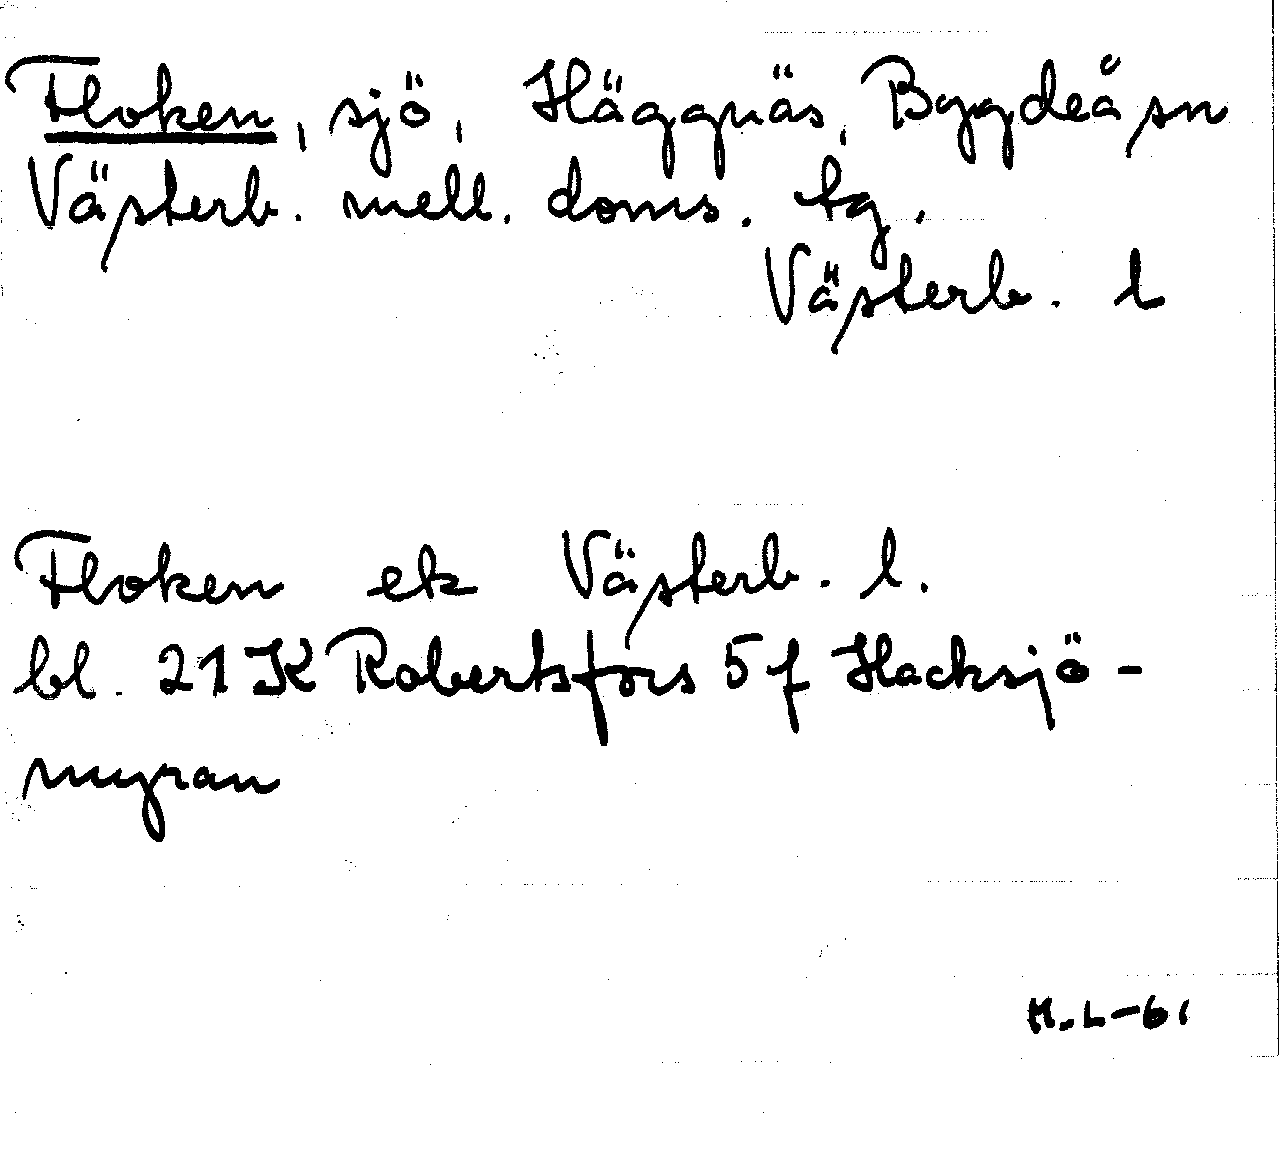 Floken, sjö, Häggnäs, Bygdeå sn
Västerb. mell. doms. tg.
Västerb. l
Floken ek Västerb. l.
bl. 21 K Robertsfors 5 f Hacksjö-
myran
H.L-61